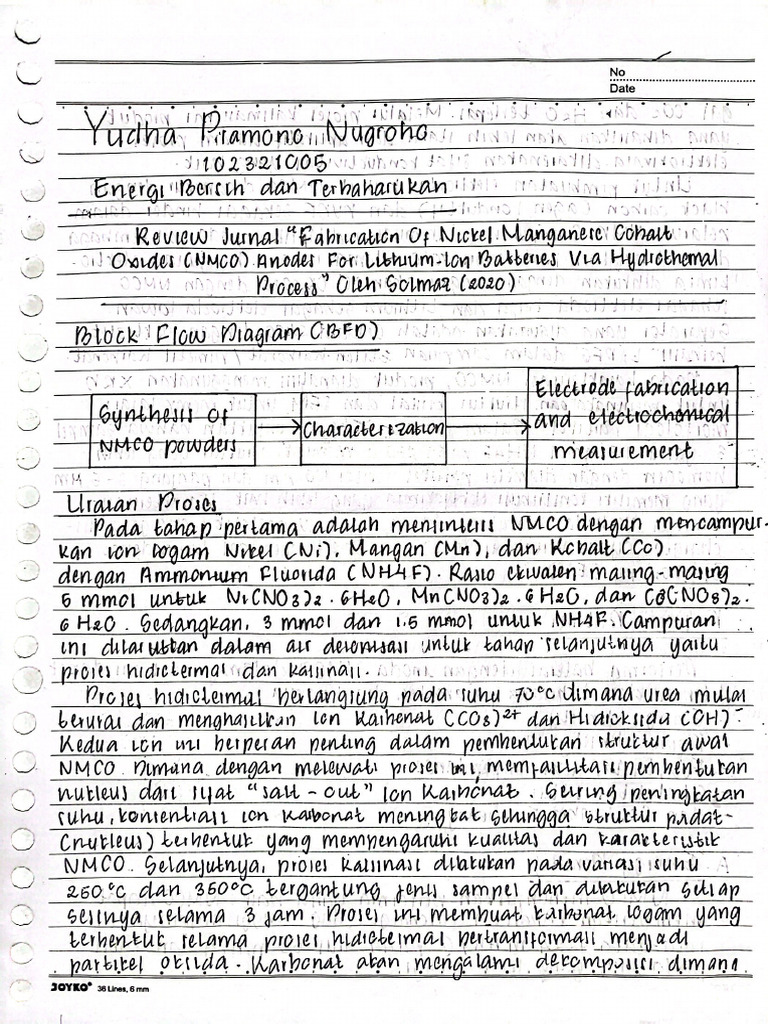 No
Date
Yudha Pramono Nugroho
102321005
Energi Bersih dan Terbaharukan
Review Jurnal "Fabrication Of Nickel Manganese Cobalt
Oxides (NMCO) Anodes For Lithium-Ion Batteries Via Hydrothemal
Process" Oleh Solmaz (2020)
Block Flow Diagram (BFD)
Synthesis of
NMCO powders
Characterization
Electrode fabrication
and electrochemical
measurement
Uraian Proses
Pada tahap pertama adalah mensintesis NMCO dengan mencampur-
kan ion logam Nikel (Ni), Mangan (Mn), dan Kobalt (Co)
dengan Ammonium Fluorida (NH4F). Rasio ekivalen masing-masing
5 mmol untuk Ni(NO3)2.6H2O, Mn(NO3)2.6H2O, dan Co(NO3)2.
6H2O. Sedangkan, 3 mmol dan 1.5 mmol untuk NH4F. Campuran
ini dilarutkan dalam air deionisasi untuk tahap selanjutnya yaitu
proses hidrotermal dan kalsinasi.
Proses hidrotermal berlangsung pada suhu 70°C dimana urea mulai
terurai dan menghasilkan ion Karbonat (CO3)2+ dan Hidroksida (OH)-
Kedua ion ini berperan penting dalam pembentukan struktur awal
NMCO. Dimana dengan melewati proses ini, memfasilitasi pembentukan
nukleus dari sifat "salt-out" ion Karbonat. Seiring peningkatan
suhu, konsentrasi ion karbonat meningkat sehingga struktur padat-
(nukleus) terbentuk yang mempengaruhi kualitas dan karakteristik
NMCO. Selanjutnya, proses kalsinasi dilakukan pada variasi suhu
250°C dan 350°C tergantung jenis sampel dan dilakukan setiap
sesinya selama 3 jam. Proses ini membuat karbonat logam yang
terbentuk selama proses hidrotermal bertransformasi menjadi
partikel oksida. Karbonat akan mengalami dekomposisi dimana
JOYKO 36 Lines, 6 mm